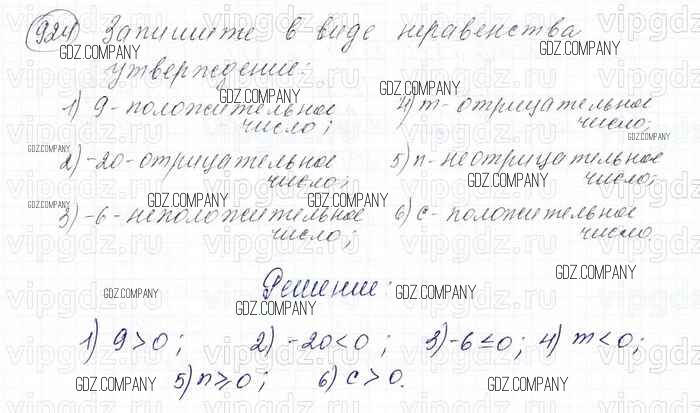 924 Запишите в виде неравенства
утверждение:
1) 9 - положительное число;
2) -20 - отрицательное число;
3) -6 - неположительное число;
4) m - отрицательное число;
5) n - неотрицательное число;
6) c - положительное число.
Решение:
1) 9 > 0; 2) -20 < 0; 3) -6 ≤ 0; 4) m < 0;
5) n ≥ 0; 6) c > 0.
GDZ.COMPANY
vipgdz.ru